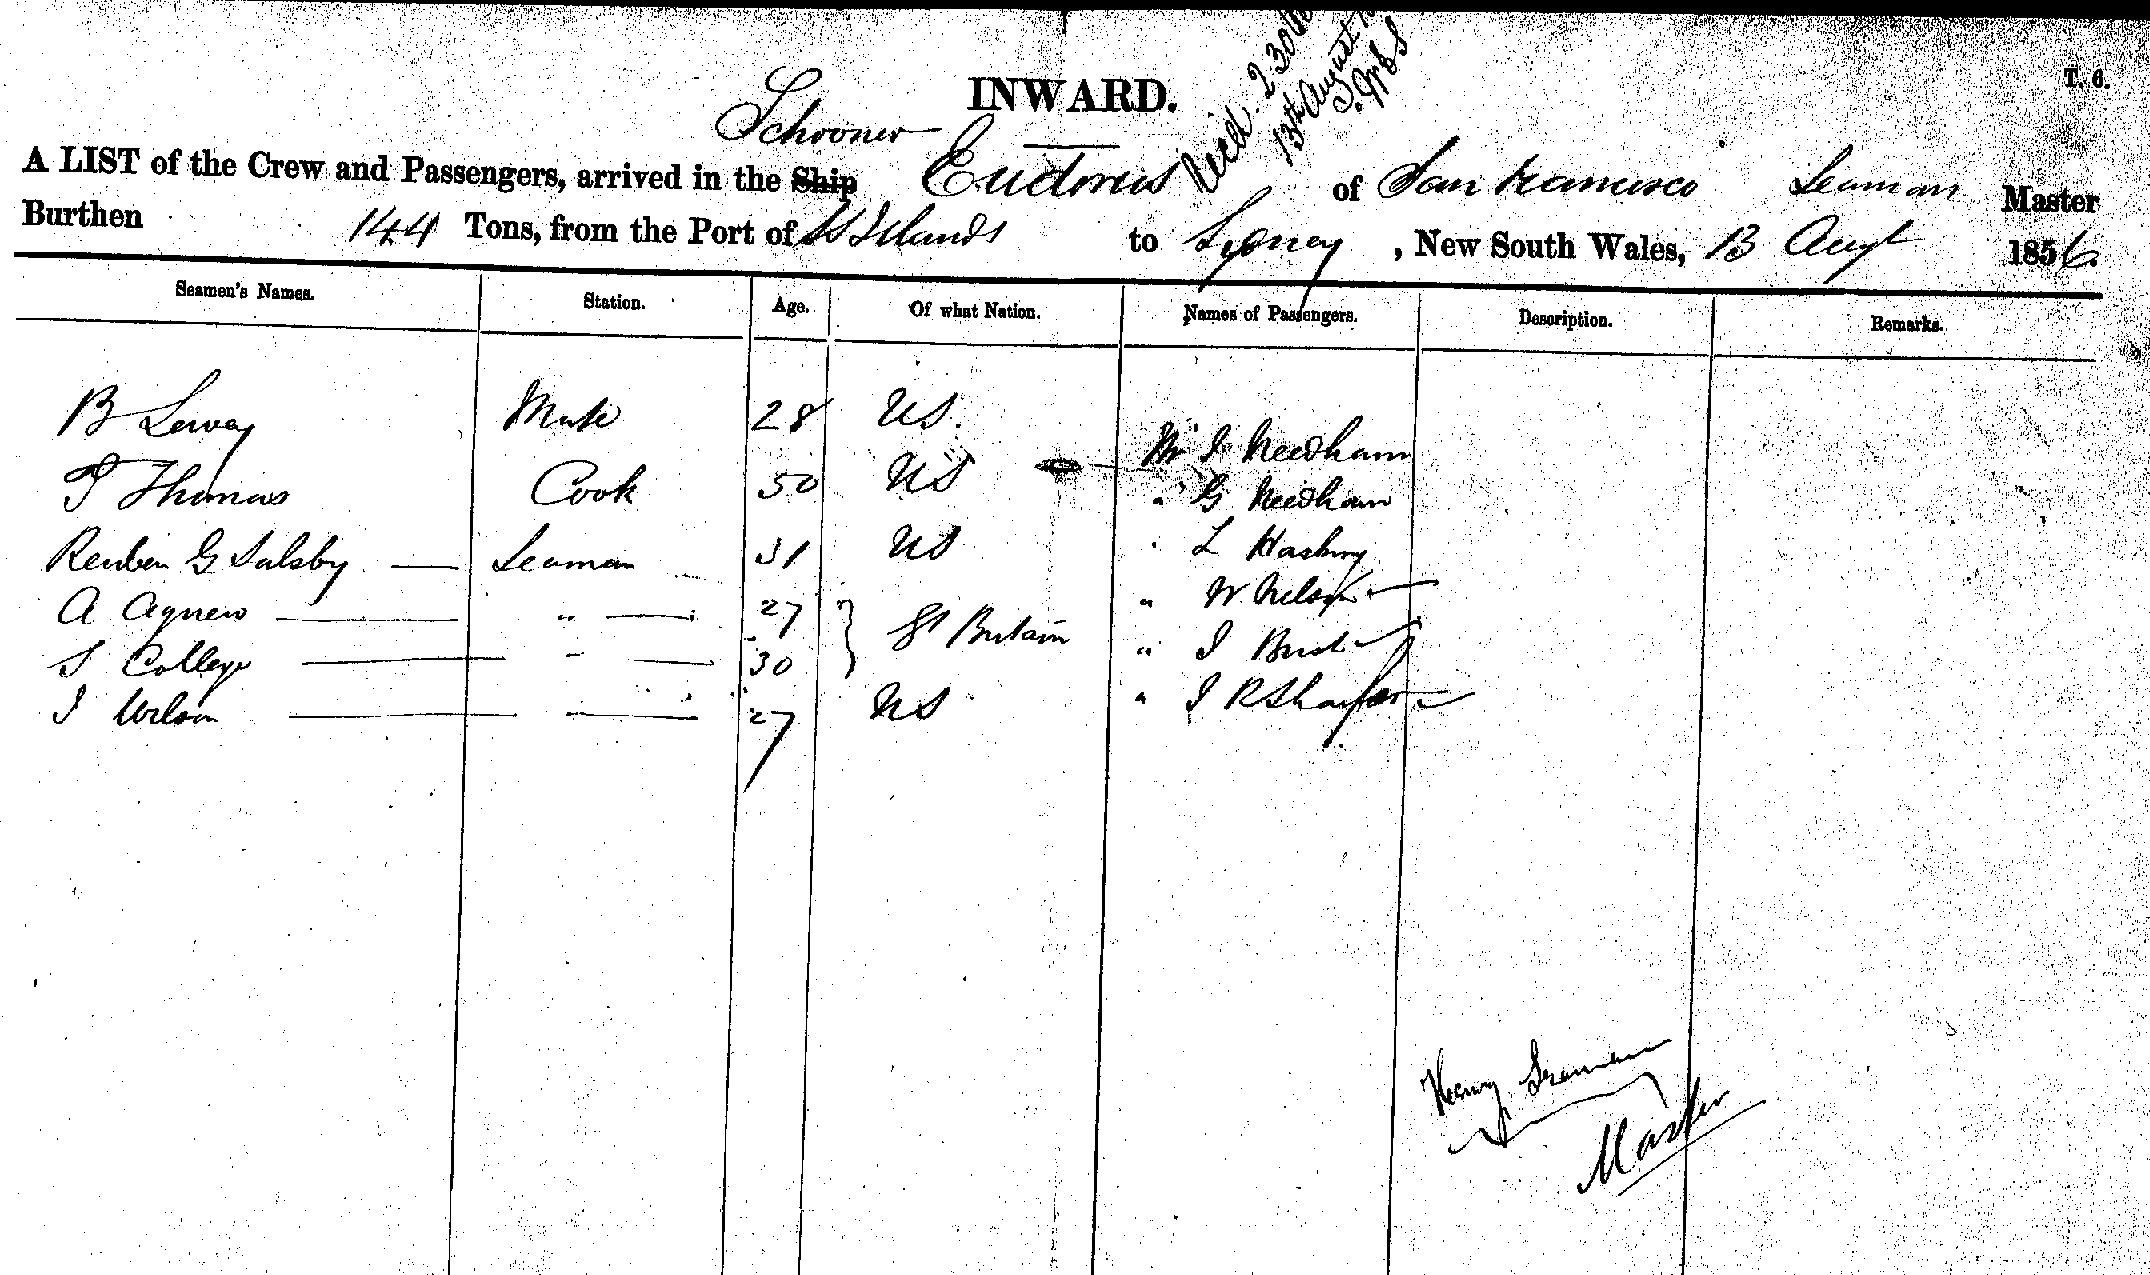 INWARD.
T. 6.
Recd. 2.30
13th August
Schooner
A LIST of the Crew and Passengers, arrived in the Ship Euctorus of San Francisco Seaman Master
Burthen 144 Tons, from the Port of Islands to Sydney, New South Wales, 13 Augt 1856.
Seamen's Names. Station. Age. Of what Nation. Names of Passengers. Description. Remarks.
B Mate 28 US.
Mr J Needham
T Thomas Cook 50 US
" G Needham
Reuben G Salsby Seaman 31 US
" L
A Agnew " 27
" W Nelson
S College " 30 Gt Britain
" J
J Wilson " 27 US
" J R Sharper
Henry Seaman
Master